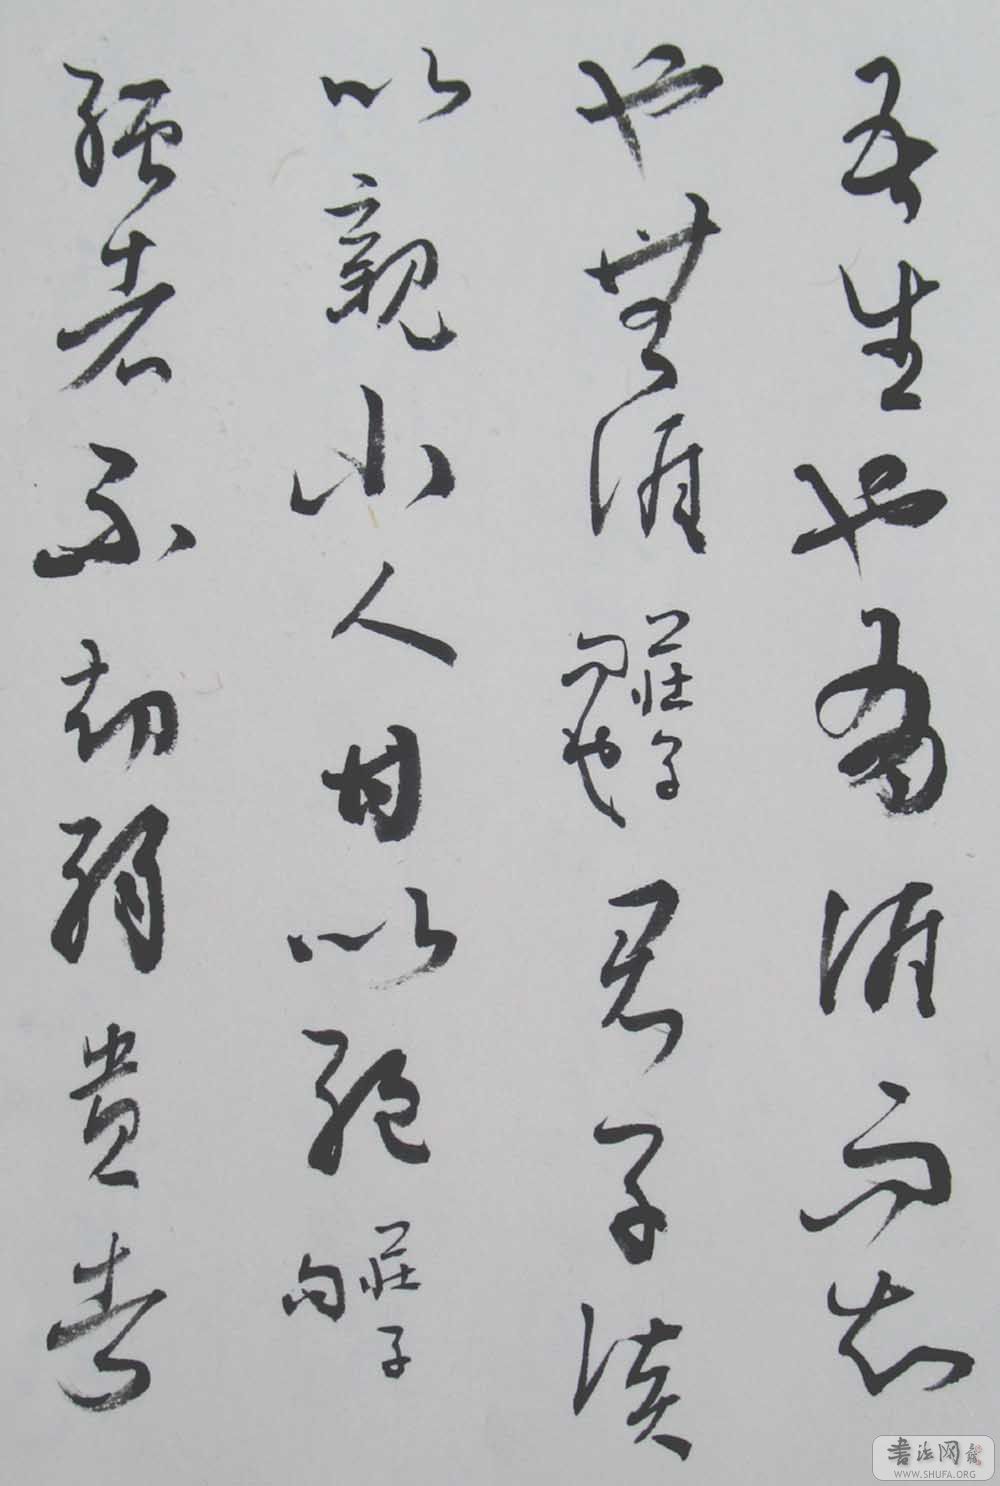 吾生也有涯而知
也無涯 莊子句也 君子淡
以親小人甘以絕 莊子句
強者不劫弱貴者
書法网
WWW.SHUFA.ORG